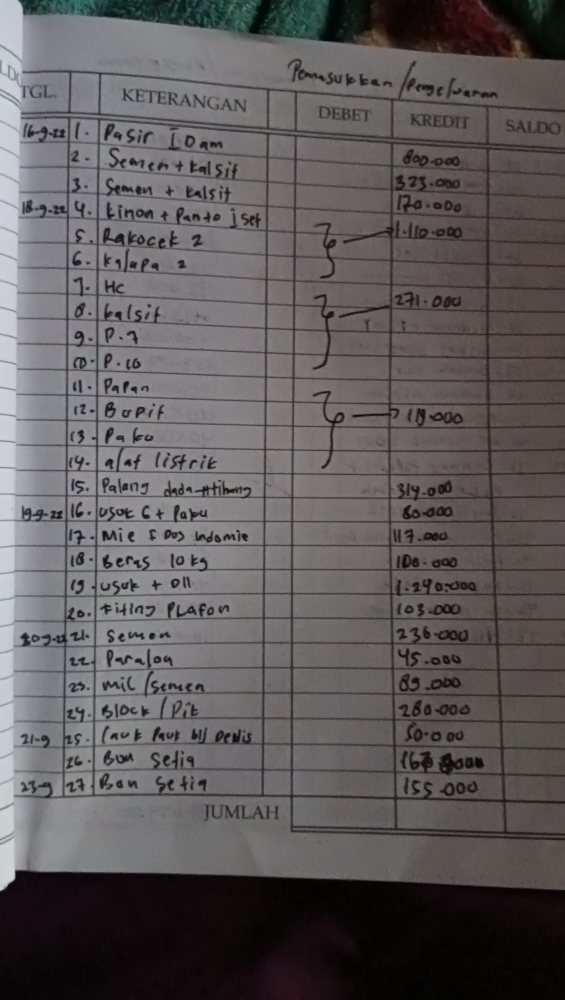 Pemasukkan/Pengeluaran
TGL. KETERANGAN DEBET KREDIT SALDO
16-9-22 1. Pasir 1 Dam 800.000
2. Semen + kalsit 323.000
3. Semen + kalsit 170.000
18-9-22 4. kinon + Panto 1 set 1.110.000
5. Rakocek 2
6. kalapa 2
7. HC 271.000
8. kalsit
9. P.7
10. P.10
11. Papan
12. Bopit 119.000
13. Paku
14. alat listrik
15. Palang dada 314.000
19-9-22 16. usuk 6 + Paku 80.000
17. Mie 1 Dos indomie 117.000
18. Beras 10 kg 100.000
19. usuk + Dll 1.240.000
20. Fiting PLAFON 103.000
20-9-22 21. Semen 236.000
22. Paralon 45.000
23. mil/semen 89.000
24. Block/Pit 280.000
21-9 25. Lauk Pauk blj Dewis 50.000
26. Bon Setia
23-9 27. Bon Setia 155.000
JUMLAH